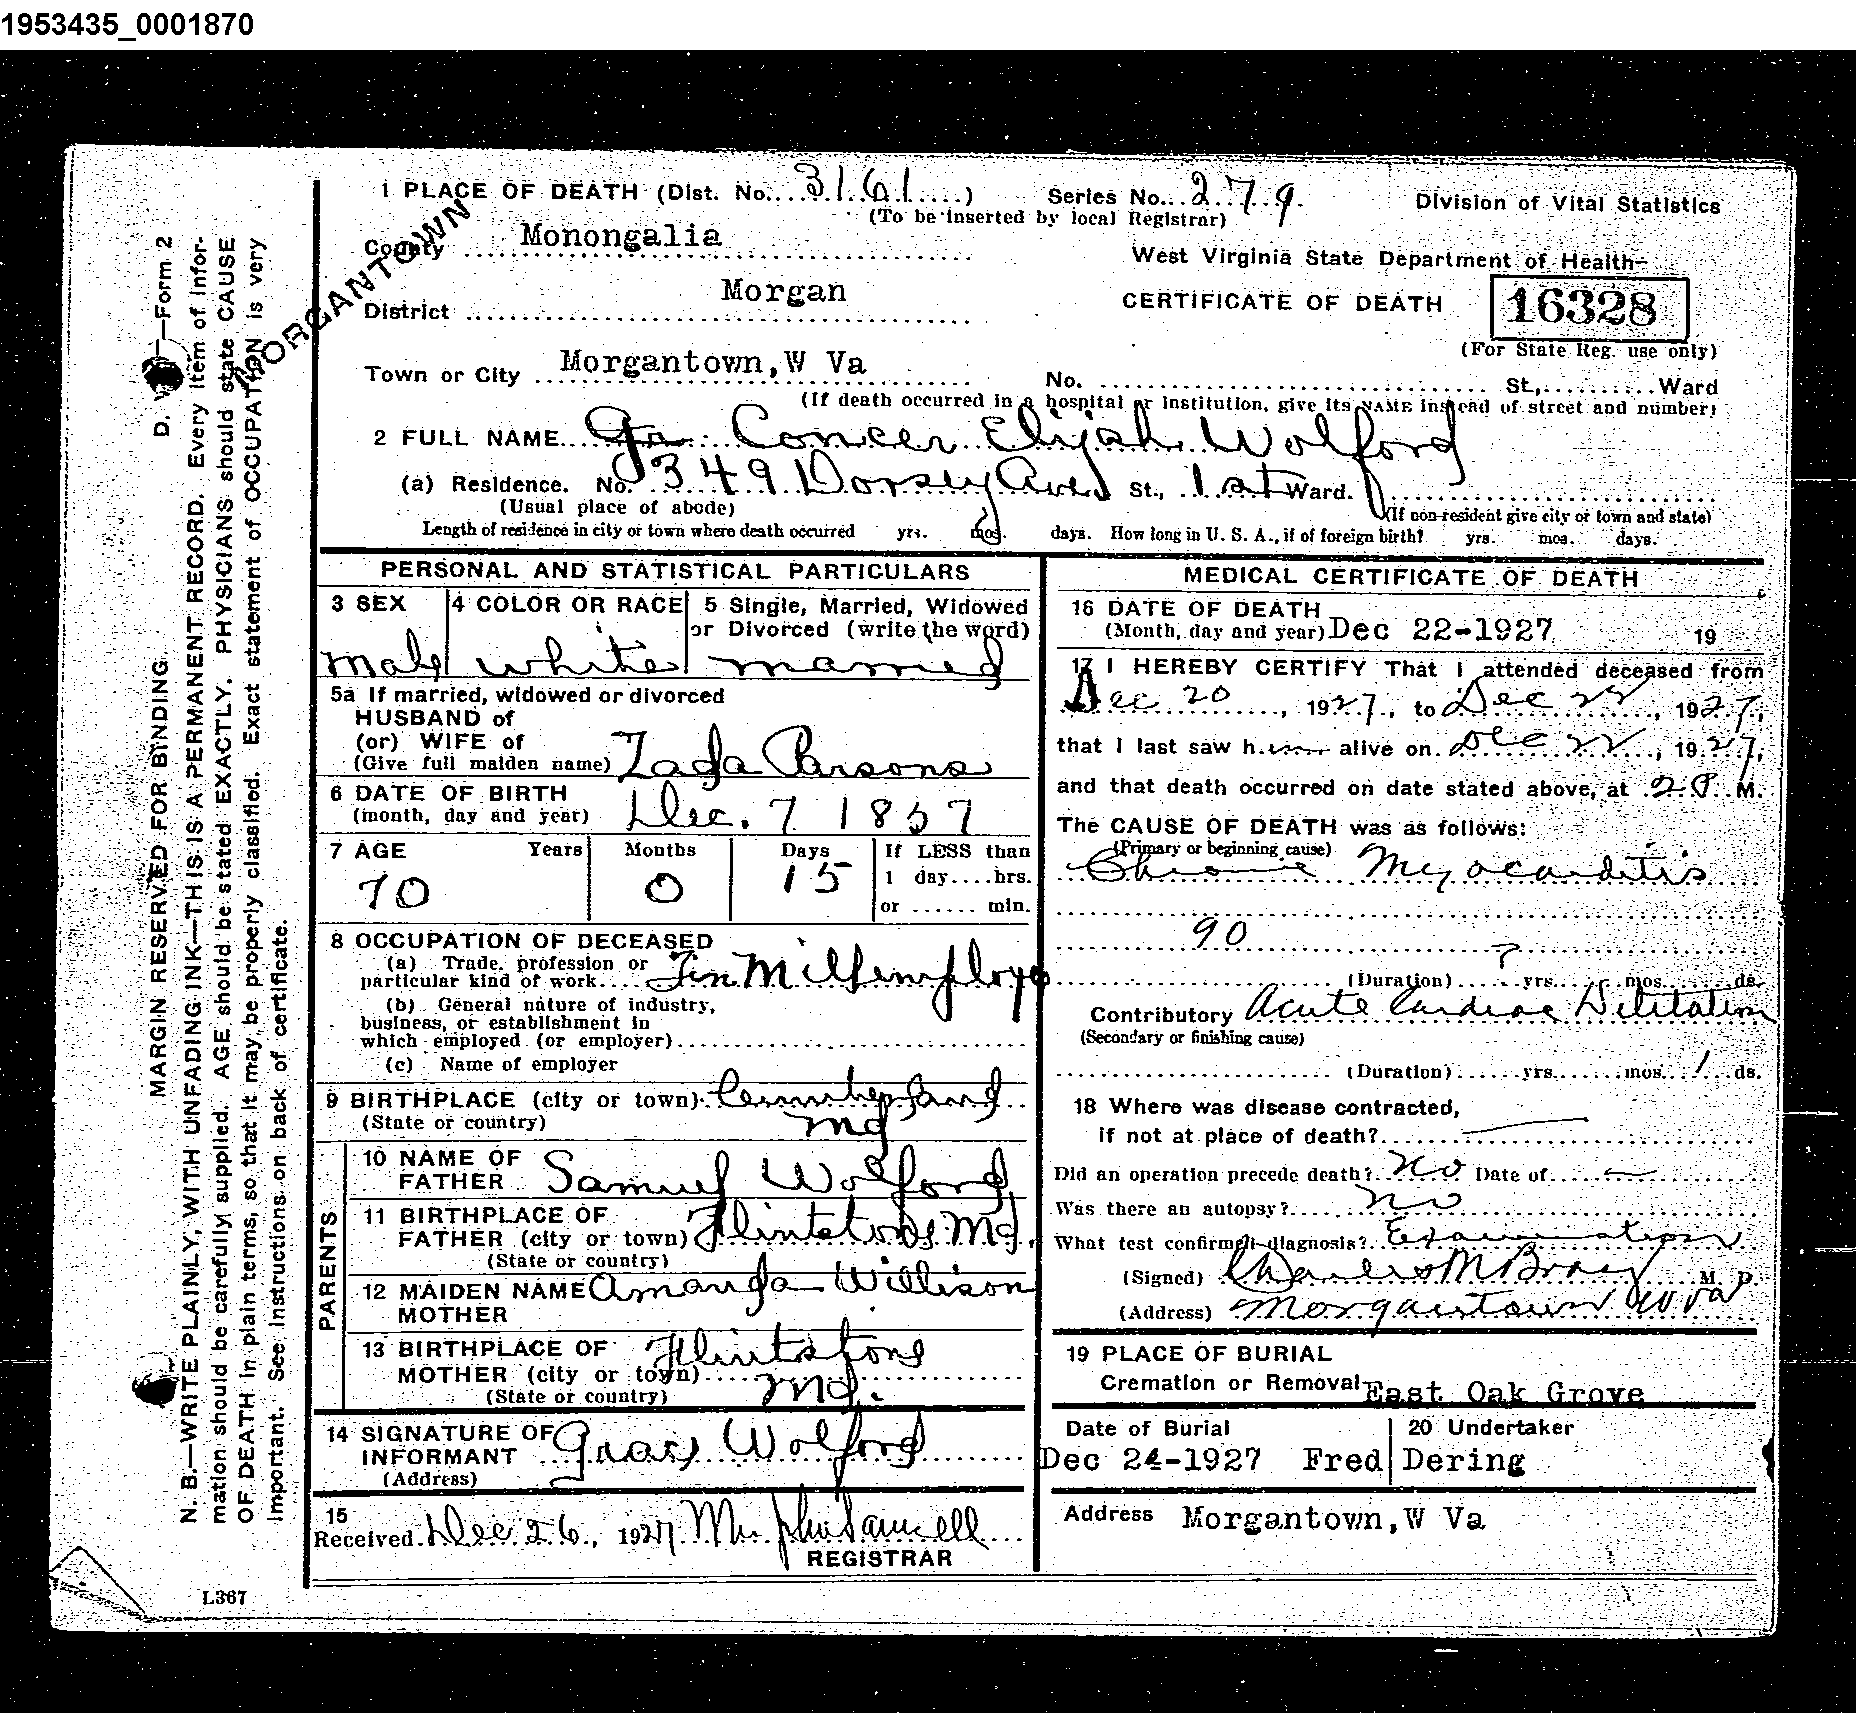 1953435_0001870
1 PLACE OF DEATH (Dist. No. 3161) Series No. 279
(To be inserted by local Registrar)
Division of Vital Statistics
MORGANTOWN
County Monongalia
West Virginia State Department of Health
District Morgan
CERTIFICATE OF DEATH 16328
(For State Reg. use only)
Town or City Morgantown,W Va No. St., Ward
(If death occurred in a hospital or institution, give its NAME instead of street and number)
2 FULL NAME Concer Elijah Wolford
(a) Residence. No. 349 Dorsey Ave St., 1st Ward.
(Usual place of abode) (If non-resident give city or town and state)
Length of residence in city or town where death occurred yrs. mos. days. How long in U. S. A., if of foreign birth? yrs. mos. days.
PERSONAL AND STATISTICAL PARTICULARS
3 SEX 4 COLOR OR RACE 5 Single, Married, Widowed
or Divorced (write the word)
Male white married
5a If married, widowed or divorced
HUSBAND of
(or) WIFE of
(Give full maiden name) Zada Parsons
6 DATE OF BIRTH
(month, day and year) Dec. 7 1857
7 AGE Years Months Days If LESS than
70 0 15 1 day....hrs.
or ...... min.
8 OCCUPATION OF DECEASED
(a) Trade, profession or
particular kind of work Tin Mill employe
(b) General nature of industry,
business, or establishment in
which employed (or employer)
(c) Name of employer
9 BIRTHPLACE (city or town) Cumberland
(State or country) Md
PARENTS
10 NAME OF
FATHER Samuel Wolford
11 BIRTHPLACE OF
FATHER (city or town) Flintstone Md.
(State or country)
12 MAIDEN NAME Amanda Willison
MOTHER
13 BIRTHPLACE OF Flintstone
MOTHER (city or town)
(State or country) Md.
14 SIGNATURE OF
INFORMANT Grace Wolford
(Address)
15
Received Dec 26, 1927
REGISTRAR
MEDICAL CERTIFICATE OF DEATH
16 DATE OF DEATH
(Month, day and year) Dec 22-1927 19
17 I HEREBY CERTIFY That I attended deceased from
Dec 20, 1927, to Dec 22, 1927,
that I last saw him alive on Dec 22, 1927,
and that death occurred on date stated above, at 2 P. M.
The CAUSE OF DEATH was as follows:
(Primary or beginning cause)
Chronic Myocarditis
90
?
(Duration) yrs. mos. ds.
Contributory Acute Cardiac Dilitation
(Secondary or finishing cause)
(Duration) yrs. mos. 1 ds.
18 Where was disease contracted,
if not at place of death?
Did an operation precede death? No Date of —
Was there an autopsy? no
What test confirmed diagnosis? Examination
(Signed) Charles M Bray M. D.
(Address) Morgantown W Va
19 PLACE OF BURIAL
Cremation or Removal East Oak Grove
Date of Burial 20 Undertaker
Dec 24-1927 Fred Dering
Address Morgantown,W Va
MARGIN RESERVED FOR BINDING D. —Form 2
N. B.—WRITE PLAINLY, WITH UNFADING INK—THIS IS A PERMANENT RECORD. Every item of infor-
mation should be carefully supplied. AGE should be stated EXACTLY. PHYSICIANS should state CAUSE
OF DEATH in plain terms, so that it may be properly classified. Exact statement of OCCUPATION is very
important. See instructions on back of certificate.
L367